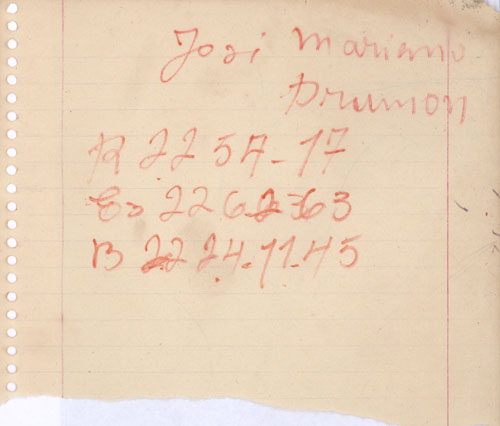 José Mariano
Drumon
R 22 57-17
Es 22 62-63
B 22 24.11.45